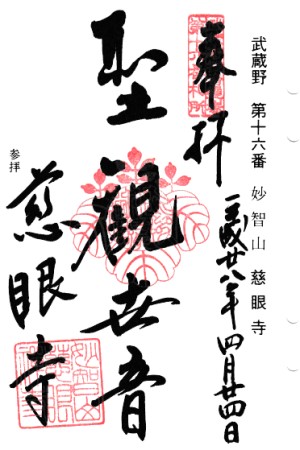 武蔵野 第十六番 妙智山 慈眼寺
奉拝
平成廿八年四月廿四日
聖觀世音
参拝
慈眼寺